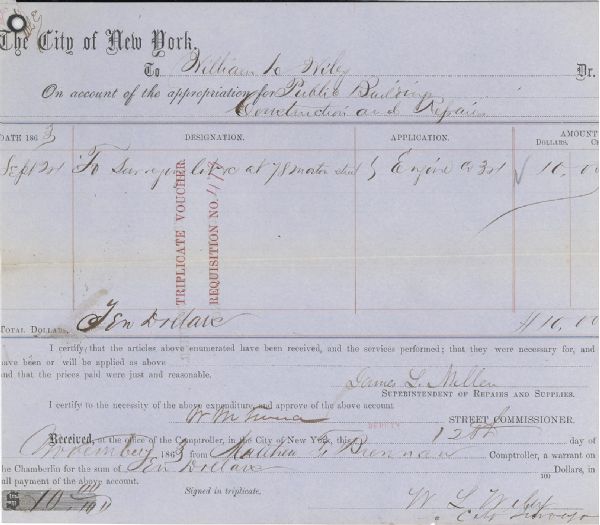 The City of New York,
To William Wiley Dr.
On account of the appropriation for Public Buildings
Construction and Repairs
DATE 1863 DESIGNATION. APPLICATION. AMOUNT
DOLLARS.
Sept 3rd To Survey lot at 78 Morton Street Engine Co 3rd 10,00
TRIPLICATE VOUCHER.
REQUISITION NO.
TOTAL DOLLARS. Ten Dollars $10,00
I certify that the articles above enumerated have been received, and the services performed; that they were necessary for, and
have been or will be applied as above
and that the prices paid were just and reasonable.
James L. Miller
SUPERINTENDENT OF REPAIRS AND SUPPLIES.
I certify to the necessity of the above expenditure, and approve of the above account
STREET COMMISSIONER.
DEPUTY
Received, at the office of the Comptroller, in the City of New York, this 12th day of
November 1863 from Matthew T. Brennan Comptroller, a warrant on
the Chamberlin for the sum of Ten Dollars 100 Dollars, in
full payment of the above account.
$10
Signed in triplicate.
City Surveyor